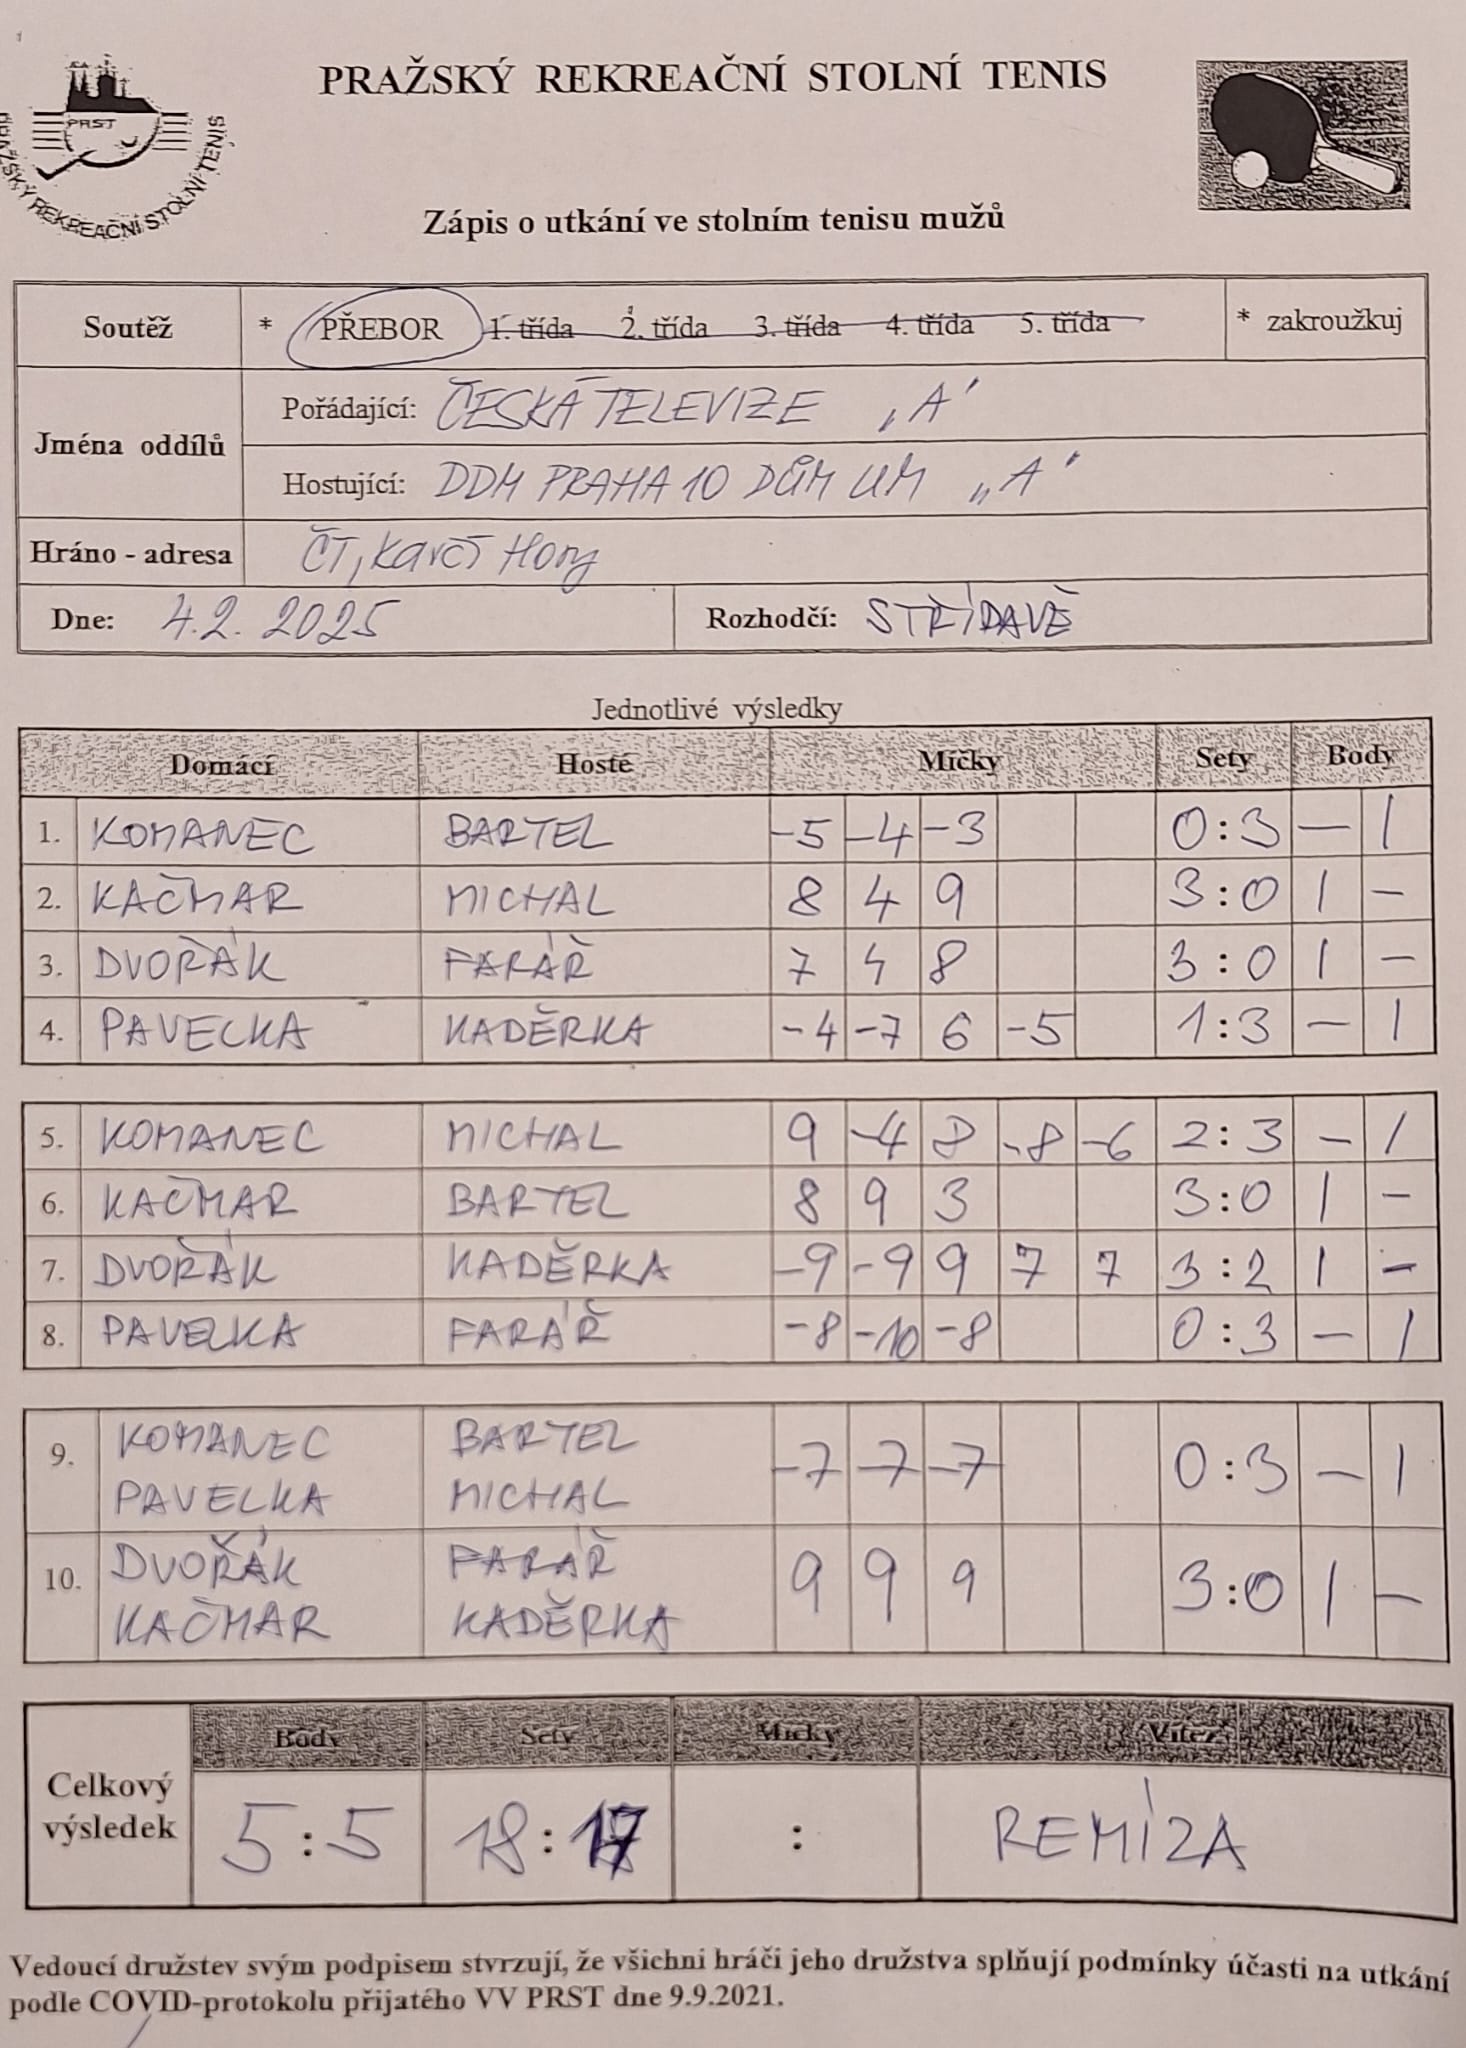 PRAŽSKÝ REKREAČNÍ STOLNÍ TENIS
PRST
PRAŽSKÝ REKREAČNÍ STOLNÍ TENIS
Zápis o utkání ve stolním tenisu mužů
Soutěž * PŘEBOR 1. třída 2. třída 3. třída 4. třída 5. třída * zakroužkuj
Jména oddílů
Pořádající: ČESKÁ TELEVIZE „A"
Hostující: DDM PRAHA 10 DŮM UM „A"
Hráno - adresa ČT, Kavčí Hory
Dne: 4.2. 2025 Rozhodčí: STŘÍDAVĚ
Jednotlivé výsledky
Domácí Hosté Míčky Sety Body
1. KOMANEC BARTEL -5 -4 -3 0:3 — 1
2. KAČMAR MICHAL 8 4 9 3:0 1 —
3. DVOŘÁK FARÁŘ 7 4 8 3:0 1 —
4. PAVELKA KADĚRKA -4 -7 6 -5 1:3 — 1
5. KOMANEC MICHAL 9 -4 8 -8 -6 2:3 — 1
6. KAČMAR BARTEL 8 9 3 3:0 1 —
7. DVOŘÁK KADĚRKA -9 -9 9 7 7 3:2 1 —
8. PAVELKA FARÁŘ -8 -10 -8 0:3 — 1
9. KOMANEC BARTEL -7 -7 -7 0:3 — 1
PAVELKA MICHAL
10. DVOŘÁK FARÁŘ 9 9 9 3:0 1 —
KAČMAR KADĚRKA
Body Sety Míčky Vítěz
Celkový výsledek 5:5 18:17 : REMÍZA
Vedoucí družstev svým podpisem stvrzují, že všichni hráči jeho družstva splňují podmínky účasti na utkání
podle COVID-protokolu přijatého VV PRST dne 9.9.2021.